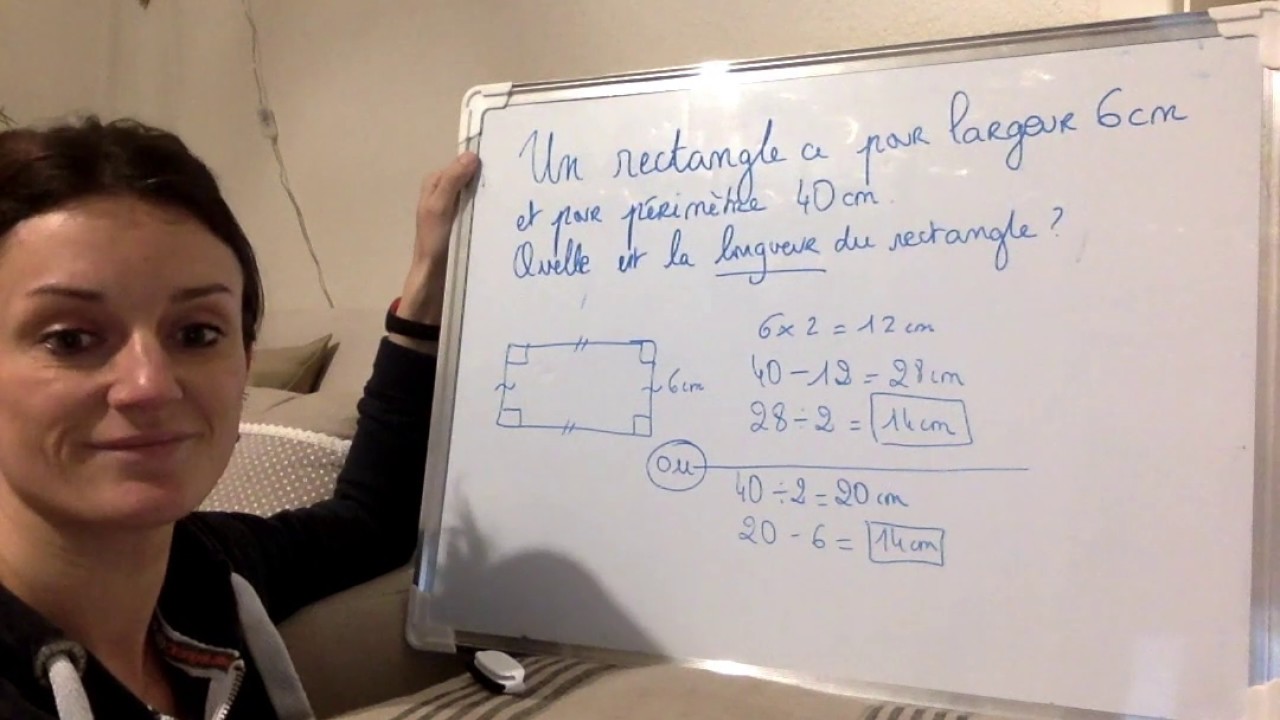 Un rectangle a pour largeur 6cm
et pour périmètre 40 cm.
Quelle est la longueur du rectangle ?
6 x 2 = 12 cm
40 - 12 = 28 cm
6 cm
28 ÷ 2 = 14 cm
ou
40 ÷ 2 = 20 cm
20 - 6 = 14 cm